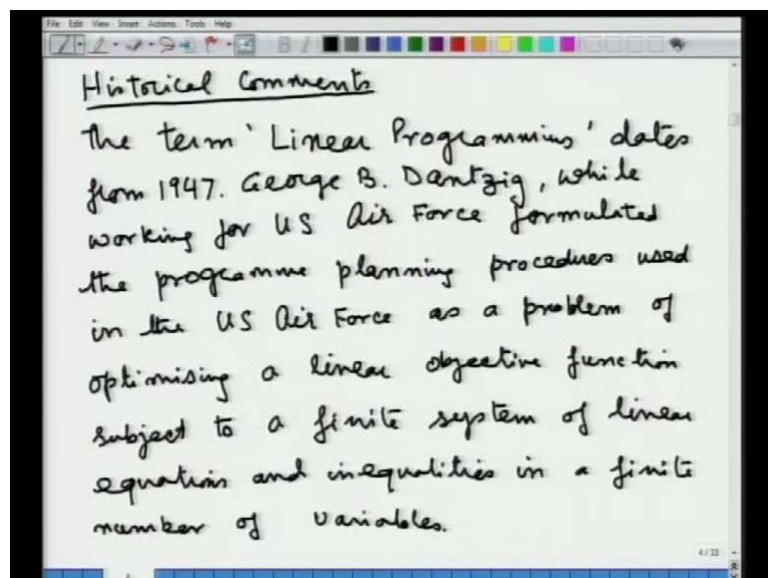 File Edit View Insert Actions Tools Help
Historical Comments
The term 'Linear Programming' dates
from 1947. George B. Dantzig, while
working for US Air Force formulated
the programme planning procedures used
in the US Air Force as a problem of
optimising a linear objective function
subject to a finite system of linear
equations and inequalities in a finite
number of variables.
4/33